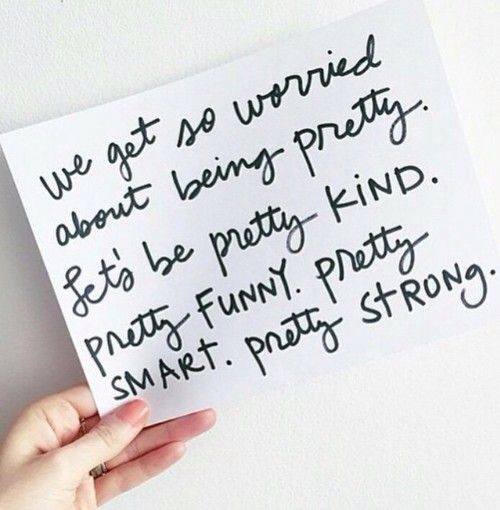 we get so worried
about being pretty.
Let's be pretty KiND.
pretty FUNNY. pretty
SMARt. pretty StRONg.